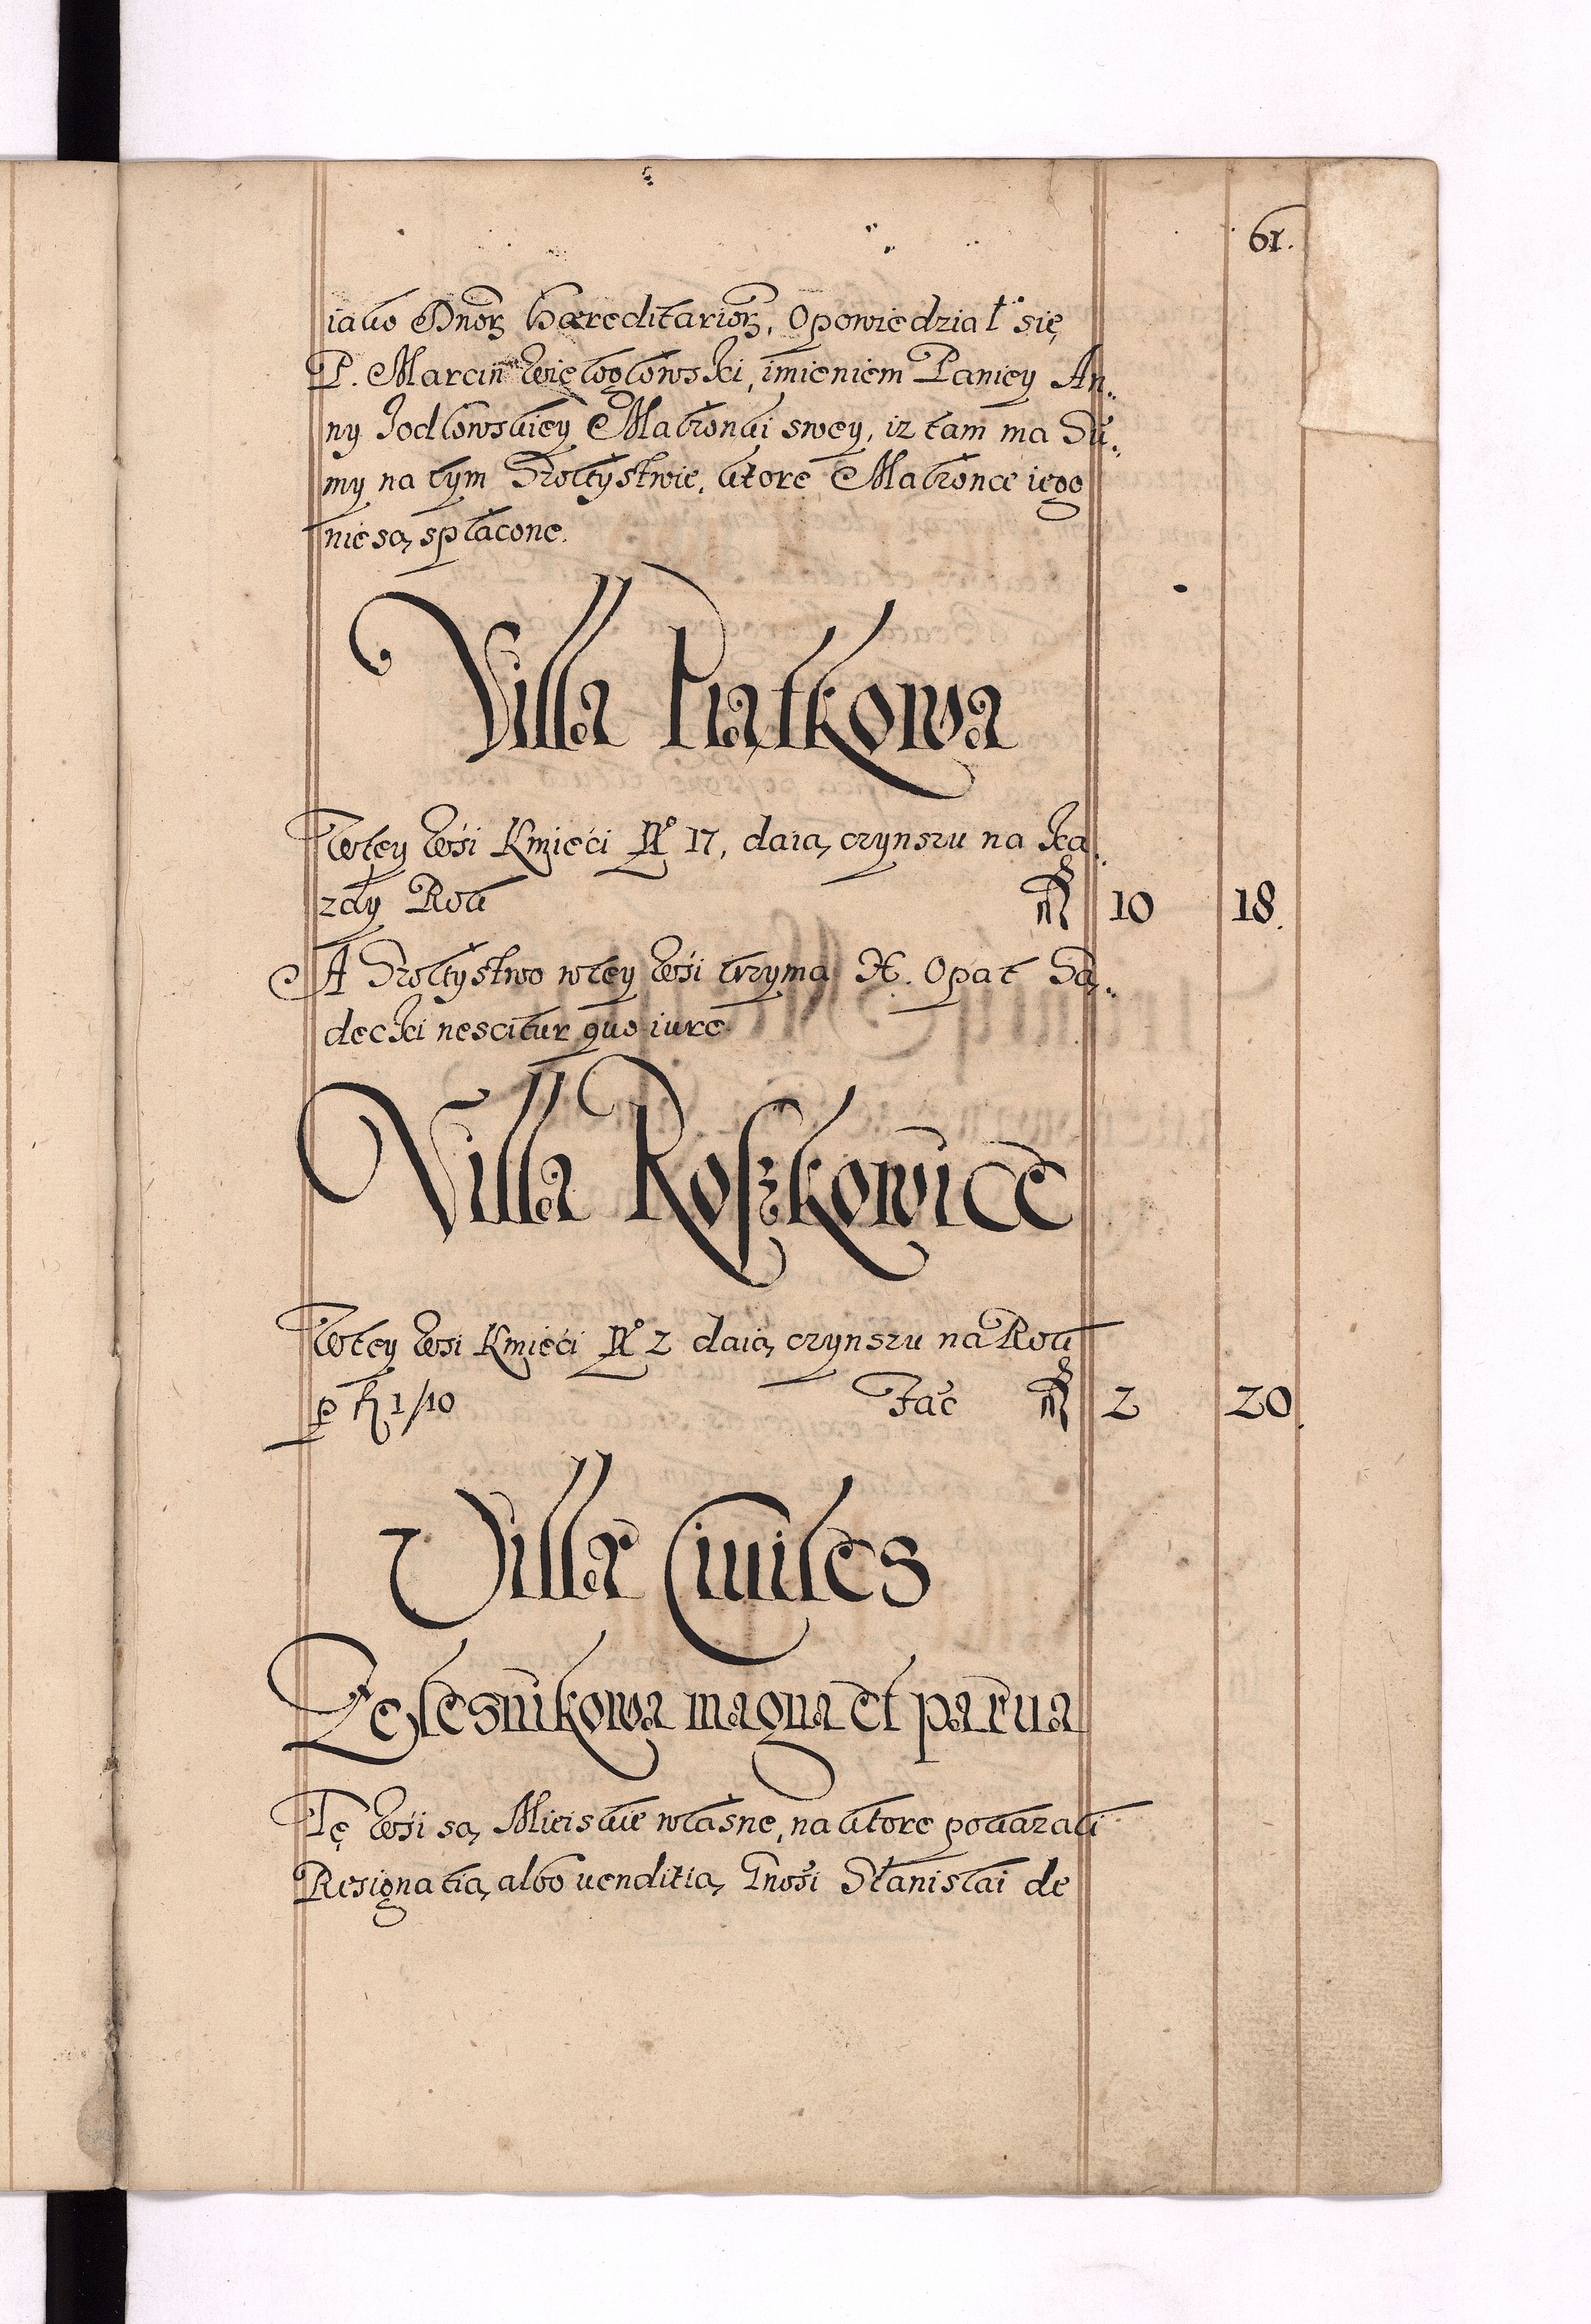 61.
iako Dnor̃ haereditarior̃, Opowiedział się
P. Marcin Więlogłowski, imieniem Paniey An,,
ny Jodłowskiey Małżonki swey, iz tam ma Su,,
my na tym Szołtystwie, ktore Małzonce iego
nie są spłacone.
Villa Piątkowa
W tey Wśi Kmieći N° 17, daią czynszu na Ka,,
zdy Rok 10 18.
A Szołtystwo w tey Wśi trzyma X. Opat Są,,
decki nescitur quo iure
Villa Roszkowice
W tey Wsi Kmieći N° 2 daią czynszu na Rok
p 1/10 Fac 2 20.
Villae Ciuiles
Zelesnikowa magna et parua
Te Wśi są Mieiskie własne, na ktore pokazali
Resignatią albo uenditią Gnosi Stanislai de